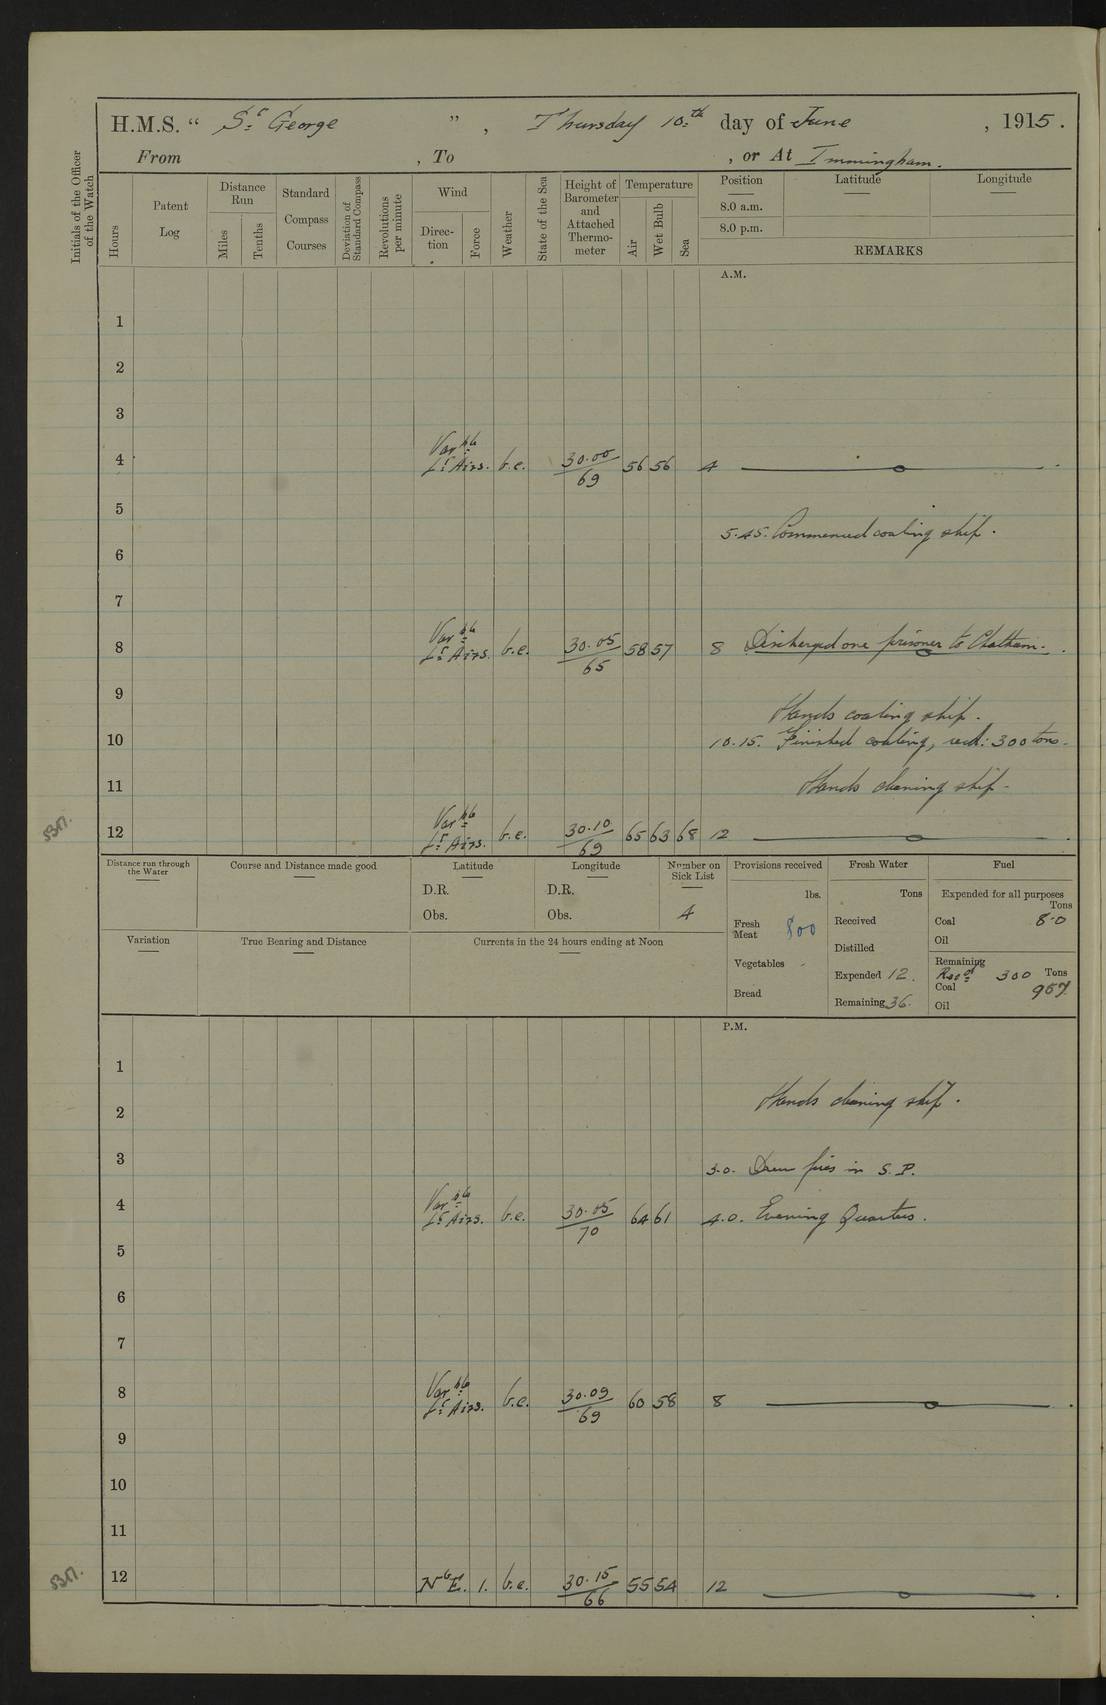 H.M.S. “ St George ” , Thursday 10th day of June , 1915.
From , To , or At Immingham.
Initials of the Officer of the Watch
Hours
Patent Log
Distance Run
Miles
Tenths
Standard Compass Courses
Deviation of Standard Compass
Revolutions per minute
Wind
Direction
Force
Weather
State of the Sea
Height of Barometer and Attached Thermometer
Temperature
Air
Wet Bulb
Sea
Position Latitude Longitude
8.0 a.m.
8.0 p.m.
REMARKS
A.M.
1
2
3
4 Varble Lt Airs. b.c. 30.00/69 56 56 4
5
5.45. Commenced coaling ship.
6
7
8 Varble Lt Airs. b.c. 30.05/65 58 57 8 Discharged one prisoner to Chatham.
9
Hands coaling ship.
10 10.15. Finished coaling, recd: 300 tons.
11 Hands cleaning ship.
12 Varble Lt Airs. b.c. 30.10/69 65 63 68 12
Distance run through the Water
Course and Distance made good
Latitude
D.R.
Obs.
Longitude
D.R.
Obs.
Number on Sick List
4
Variation
True Bearing and Distance
Currents in the 24 hours ending at Noon
Provisions received
lbs.
Fresh Meat 800
Vegetables -
Bread
Fresh Water
Tons
Received
Distilled
Expended 12.
Remaining 36.
Fuel
Expended for all purposes
Tons
Coal 8.0
Oil
Remaining
Recd 300 Tons
Coal 957
Oil
P.M.
1
Hands cleaning ship.
2
3 3.0. Drew fires in S.P.
4 Varble Lt Airs. b.c. 30.05/70 64 61 4.0. Evening Quarters.
5
6
7
8 Varble Lt Airs. b.c. 30.09/69 60 58 8
9
10
11
12 NbE. 1. b.c. 30.15/66 55 54 12